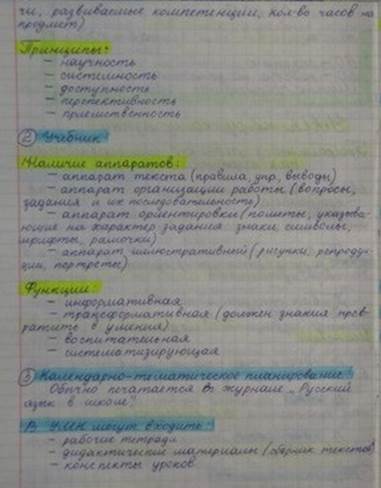 чи, развиваемые компетенции, кол-во часов на
предмет)
Принципы:
– научность
– системность
– доступность
– перспективность
– преемственность
② Учебник
Наличие аппаратов:
– аппарат текста (правила, упр., выводы)
– аппарат организации работы (вопросы,
задания и их последовательность)
– аппарат ориентировки (пометы, указыва-
ющие на характер задания знаки, символы,
шрифты, рамочки)
– аппарат иллюстративный (рисунки, репродук-
ции, портреты)
Функции:
– информативная
– трансформативная (должен знания прев-
ратить в умения)
– воспитательная
– систематизирующая
③ Календарно-тематическое планирование.
Обычно печатается в журнале „Русский
язык в школе".
В УМК могут входить:
– рабочие тетради
– дидактические материалы (сборник текстов)
– конспекты уроков